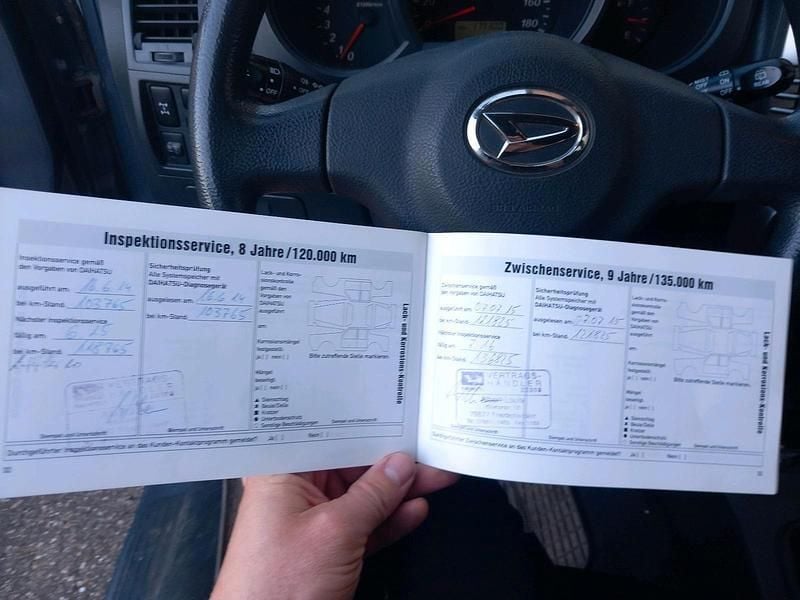 160
180
OFF
OFF
MIST
OFF
ON
Inspektionsservice, 8 Jahre/120.000 km
Inspektionsservice gemäß
den Vorgaben von DAIHATSU
ausgeführt am: 18.6.14
bei km-Stand: 103765
Nächster Inspektionsservice
fällig am:
bei km-Stand: 118765
Stempel und Unterschrift
Sicherheitsprüfung
Alle Systemspeicher mit
DAIHATSU-Diagnosegerät
ausgelesen am: 18.6.14
bei km-Stand: 103765
Stempel und Unterschrift
Lack- und Korro-
sionskontrolle
gemäß den
Vorgaben von
DAIHATSU
ausgeführt
am:
Karosseriemängel
ja [ ] nein [ ]
Mängel
beseitigt
ja [ ] nein [ ]
Bitte zutreffende Stelle markieren.
Steinschlag
Beule/Delle
Kratzer
Unterbodenschutz
Sonstige Beschädigungen
Lack- und Korrosions-Kontrolle
Durchgeführter Inspektionsservice an das Kunden-Kontaktprogramm gemeldet? Ja [ ] Nein [ ]
Zwischenservice, 9 Jahre/135.000 km
Zwischenservice gemäß
den Vorgaben von
DAIHATSU
ausgeführt am: 07.07.15
bei km-Stand: 121825
Nächster Inspektionsservice
fällig am: 7.16
bei km-Stand: 136825
VERTRAGS-
HÄNDLER
Stempel und Unterschrift
Sicherheitsprüfung
Alle Systemspeicher mit
DAIHATSU-Diagnosegerät
ausgelesen am: 07.07.15
bei km-Stand: 121825
Stempel und Unterschrift
Lack- und Korro-
sionskontrolle
gemäß den
Vorgaben von
DAIHATSU
ausgeführt
am:
Karosseriemängel
ja [ ] nein [ ]
Mängel
beseitigt
ja [ ] nein [ ]
Bitte zutreffende Stelle markieren.
Steinschlag
Beule/Delle
Kratzer
Unterbodenschutz
Sonstige Beschädigungen
Lack- und Korrosions-Kontrolle
Durchgeführter Zwischenservice an das Kunden-Kontaktprogramm gemeldet? Ja [ ] Nein [ ]